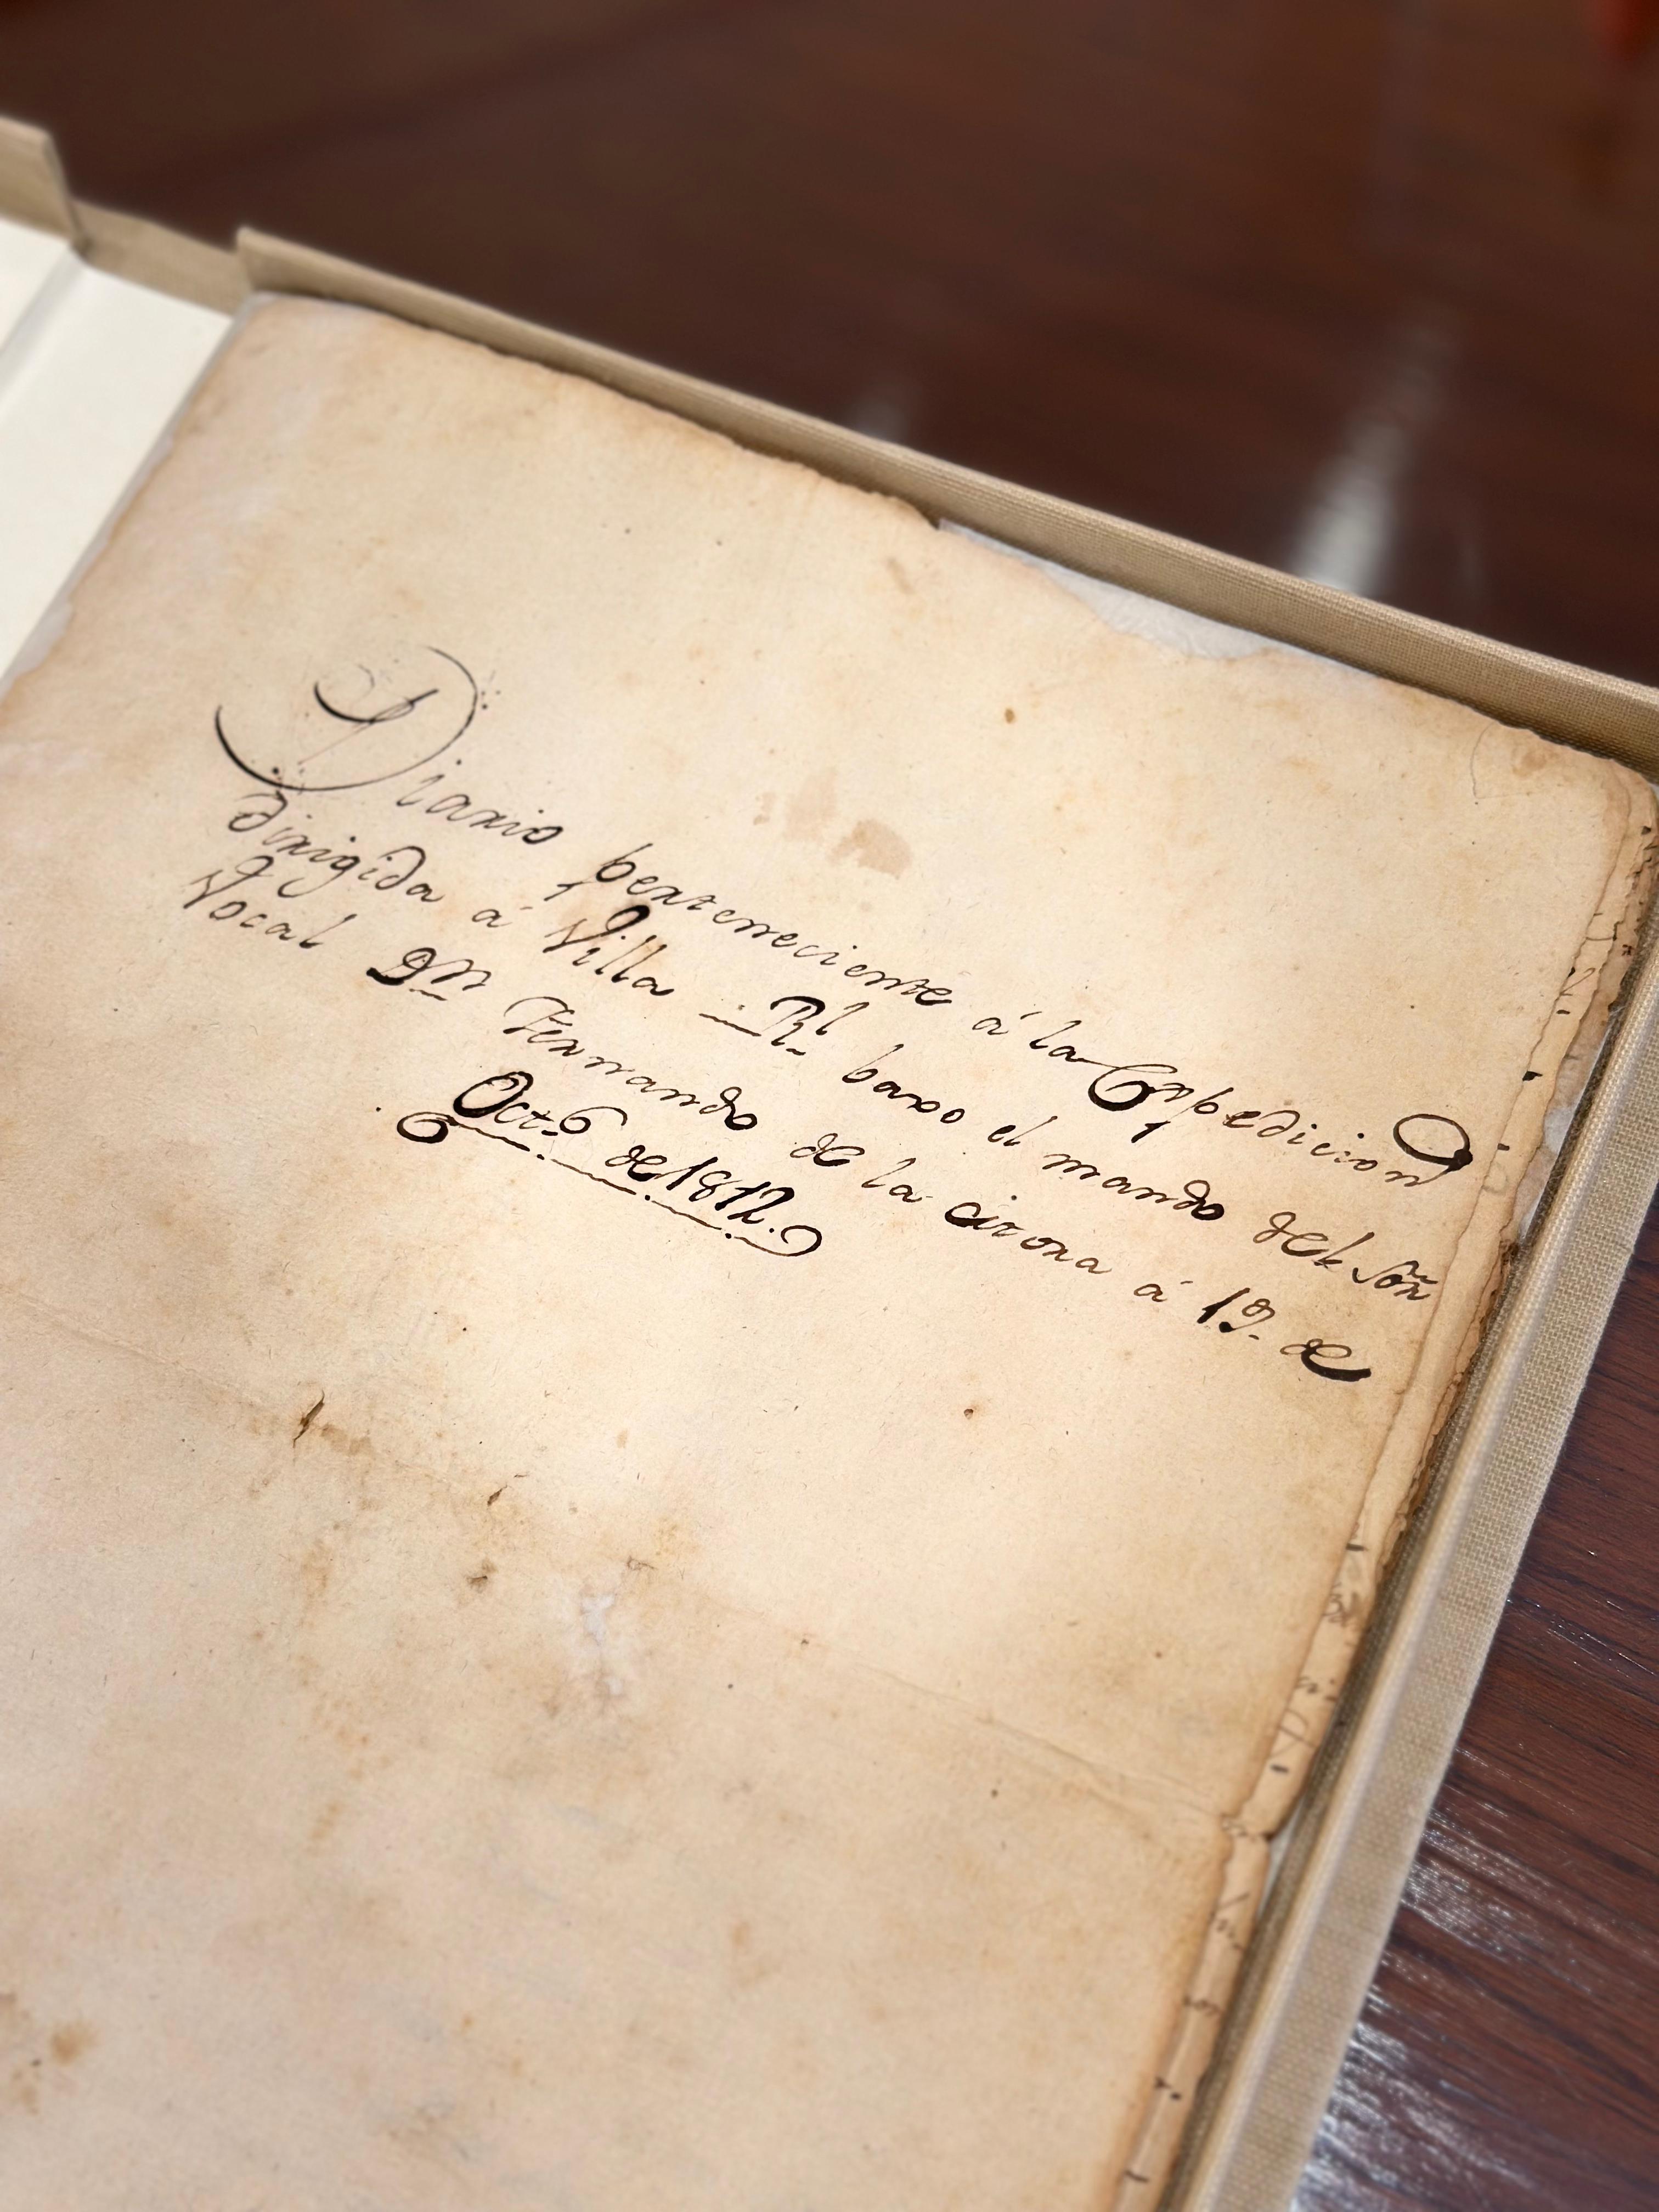 Diario perteneciente á la Expedicion
dirigida á Villa Rl. baxo el mando del Sōr
Vocal Dn. Fernando de la Cirona á 19. de
Oct.e de 1812.